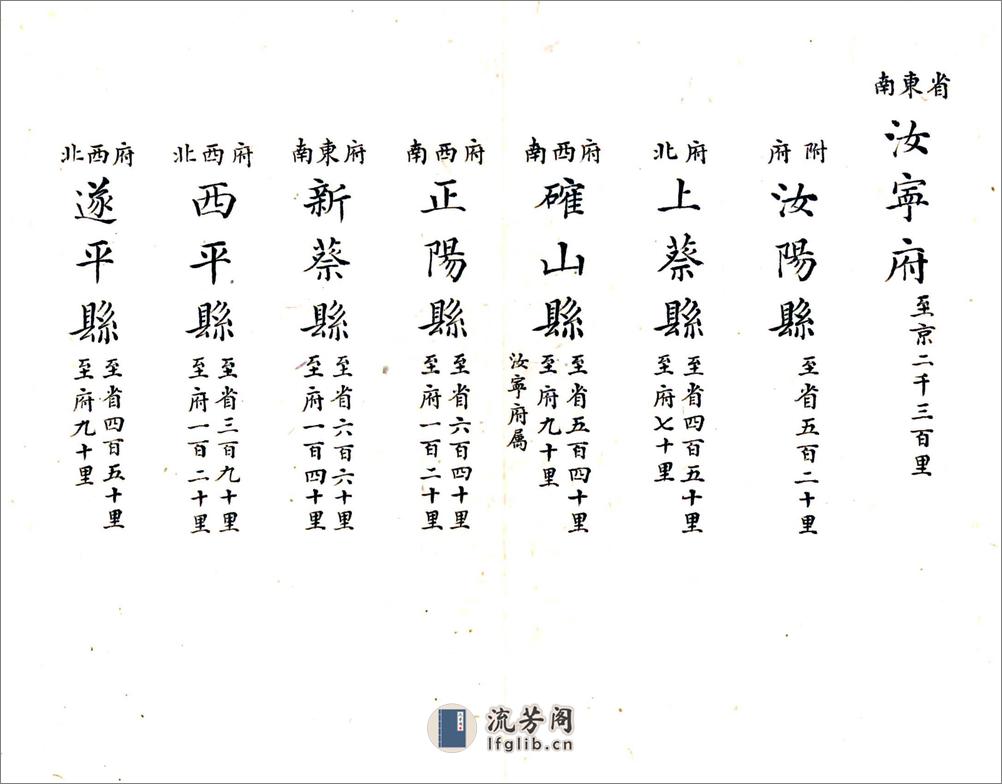 省東南
汝寧府
至京二千三百里
附府
汝陽縣
至省五百二十里
府北
上蔡縣
至省四百五十里
至府七十里
府西南
確山縣
至省五百四十里
至府九十里
汝寧府属
府西南
正陽縣
至省六百四十里
至府一百二十里
府東南
新蔡縣
至省六百六十里
至府一百四十里
府西北
西平縣
至省三百九十里
至府一百二十里
府西北
遂平縣
至省四百五十里
至府九十里
流芳阁
lfglib.cn